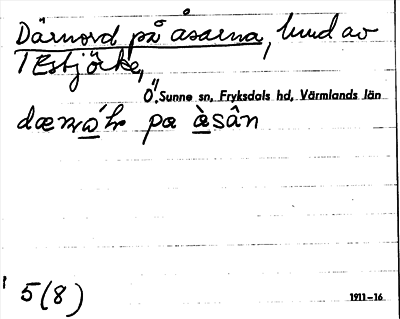 Därnord på åsarna, lund av
1 Estjörke,
Ö. Sunne sn, Fryksdals hd, Värmlands län
pæ àsân
5(8)
1911–16